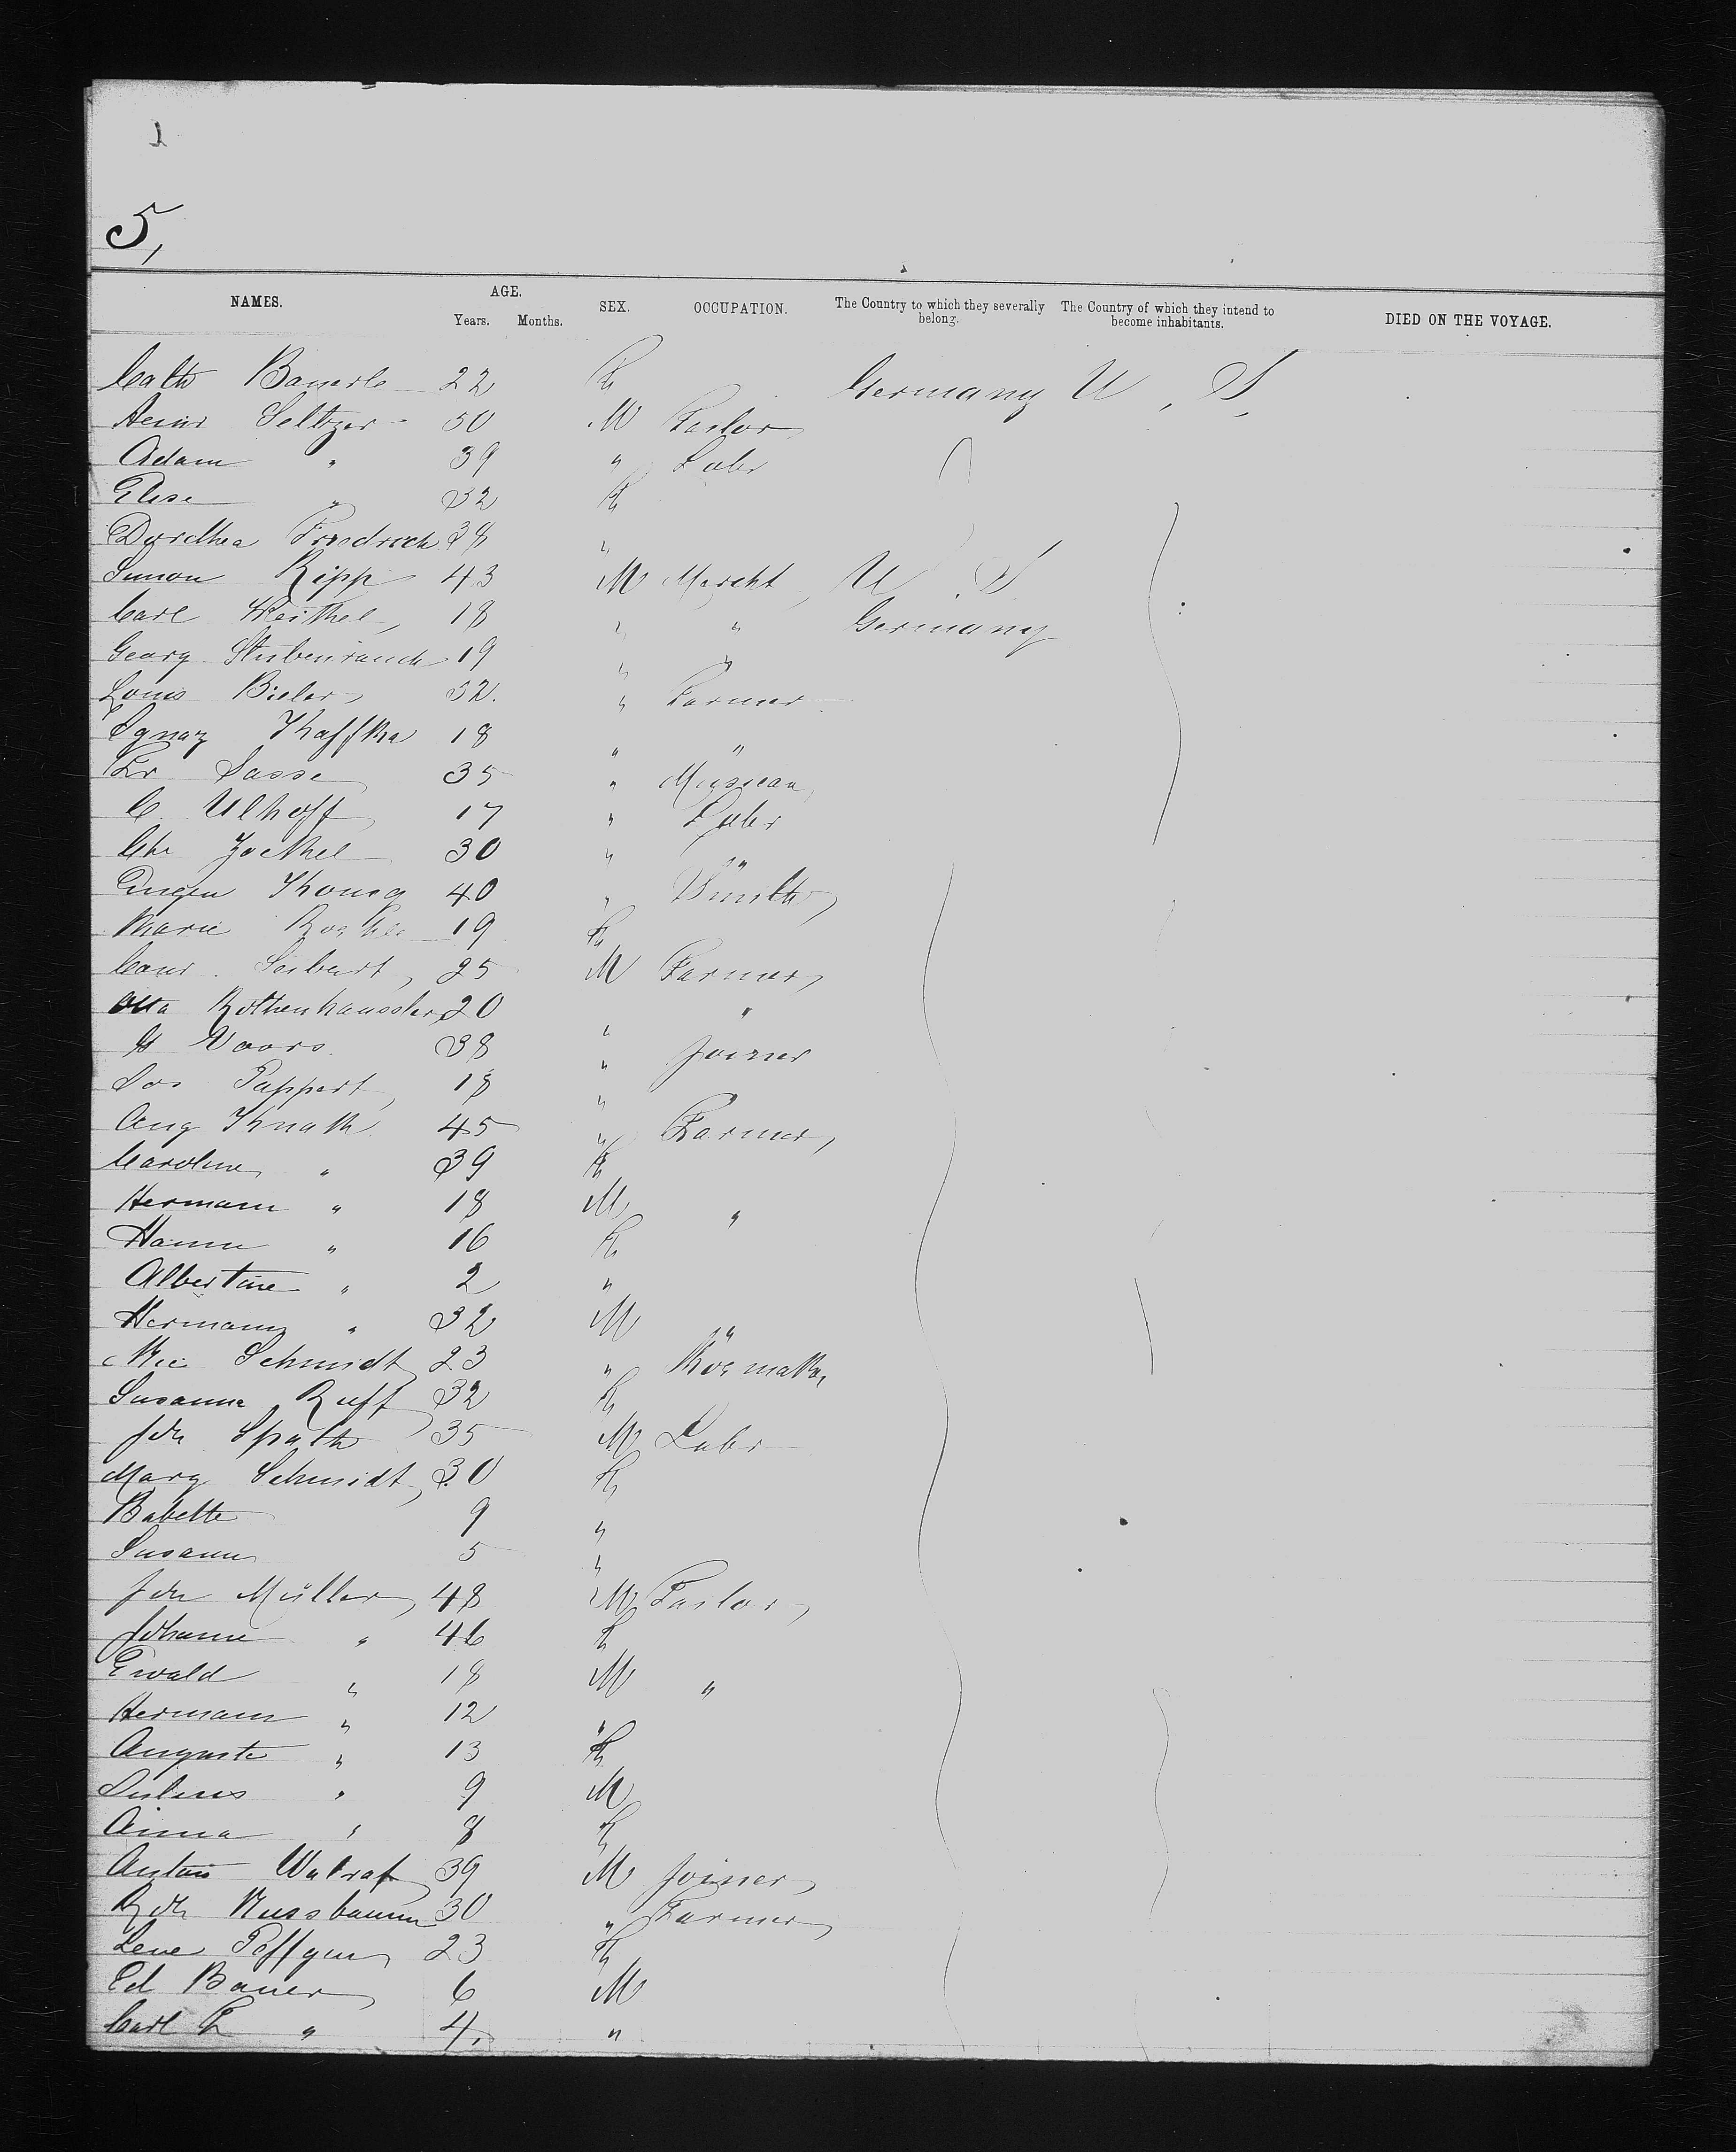 5,
NAMES. AGE. Years. Months. SEX. OCCUPATION. The Country to which they severally belong. The Country of which they intend to become inhabitants. DIED ON THE VOYAGE.
Cath Bauerle 22 F Germany U. S.
Heinr Seltzer 50 M Tailor
Adam " 39 " Labr
Elise " 32 F
Dorothea Friedrich 38 "
Simon Ripp 43 M Mercht U S
Carl 18 " " Germany
Georg Stubenrauch 19 " "
Louis Bieler 52. " Farmer
Ignaz Kaffka 18 " "
Fr Sasse 35 " Musican
C. Ulhoff 17 " Labr
Chr 30 " "
Eugen Konig 40 "
Marie 19 F
Conr. Seibert 25 M Farmer
Otto Rothenhaussler 20 " "
H Voors 38 " Joiner
Jos Pappert 18 "
Aug Knath 45 " Farmer,
Caroline " 39 F
Hermann " 18 M "
Hanne " 16 F
Albertine " 2 "
Hermann " 32 M "
Nic Schmidt 23 "
Susanne Ruff 32 F
Joh Späth 35 M Labr
Marg Schmidt 30 F
Babette 9 "
Susann 5 "
Joh Müller, 48 M Tailor
Johanne " 46 F
Ewald " 18 M "
Hermann " 12 "
Auguste " 13 F
Julius " 9 M
Anna " 8 F
Anton Walraf 39 M Joiner
Rdh Nussbaum 30 " Farmer
Lene Poffgen 23 F
Ed Bauer 6 M
Carl F " 4, "